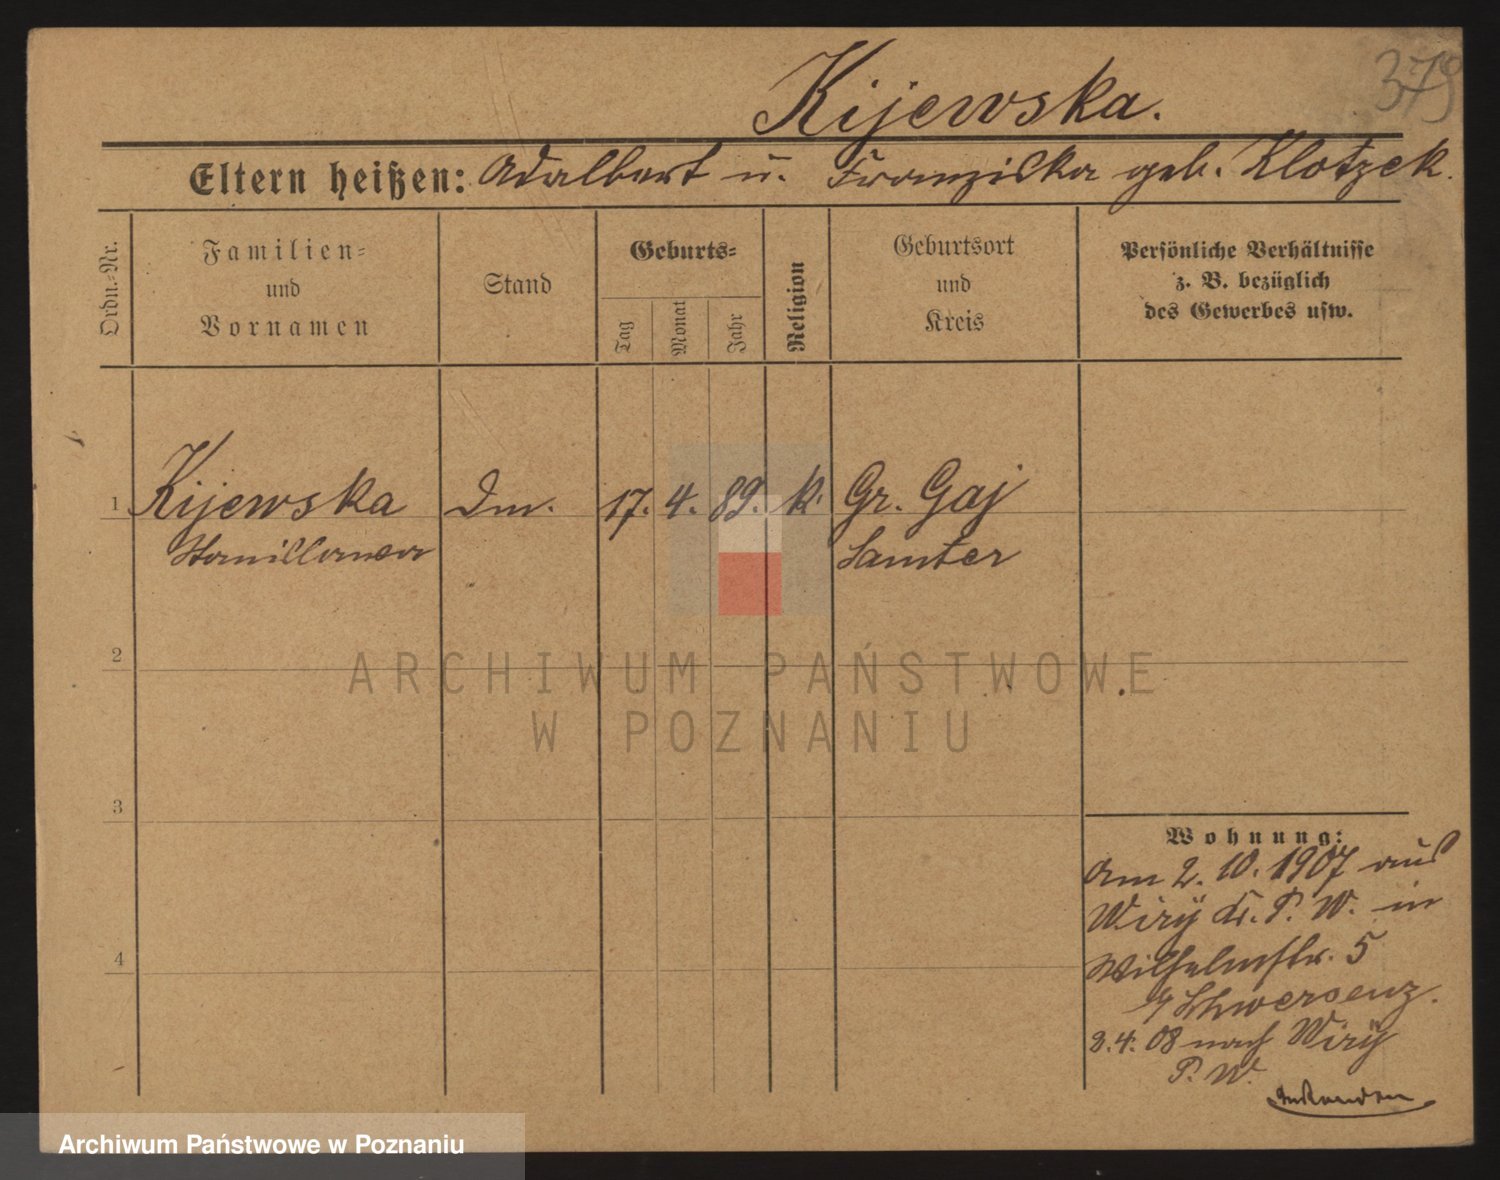 379
Kijewska.
Eltern heißen: Adalbert u. Franziska geb. Klotzek.
Ordn.-Nr.
Familien-
und
Vornamen
Stand
Geburts-
Tag
Monat
Jahr
Religion
Geburtsort
und
Kreis
Persönliche Verhältnisse
z. B. bezüglich
des Gewerbes usw.
1 Kijewska Dm. 17. 4. 89. k. Gr. Gaj
Stanislawa Samter
2
ARCHIWUM PAŃSTWOWE
W POZNANIU
3
Wohnung:
Am 2. 10. 1907 aus
Wiry Kr. P. W. in
4
Wilhelmstr. 5
Schwersenz.
2. 4. 08 nach Wiry
P. W.
Archiwum Państwowe w Poznaniu